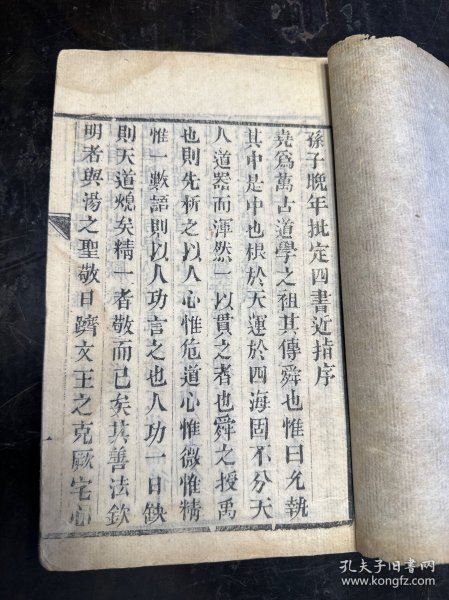 孫子晚年批定四書近指序
堯爲萬古道學之祖其傳舜也惟曰允執
其中是中也根於天運於四海固不分天
人道器而渾然一以貫之者也舜之授禹
也則先析之以人心惟危道心惟微惟精
惟一數語則以人功言之也人功一日缺
則天道熄矣精一者敬而已矣其善法欽
明者與湯之聖敬日躋文王之克厥宅心
一
孔夫子旧书网
www.kongfz.com